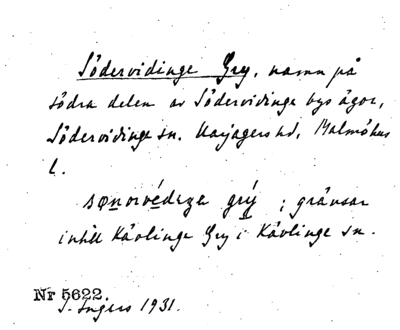 Södervidinge Gry, namn på
södra delen av Södervidinge bys ägor,
Södervidinge sn. Harjagers hd, Malmöhus
l.
grý ; gränsar
intill Kävlinge Gry i Kävlinge sn.
Nr 5622.
I. Ingers 1931.